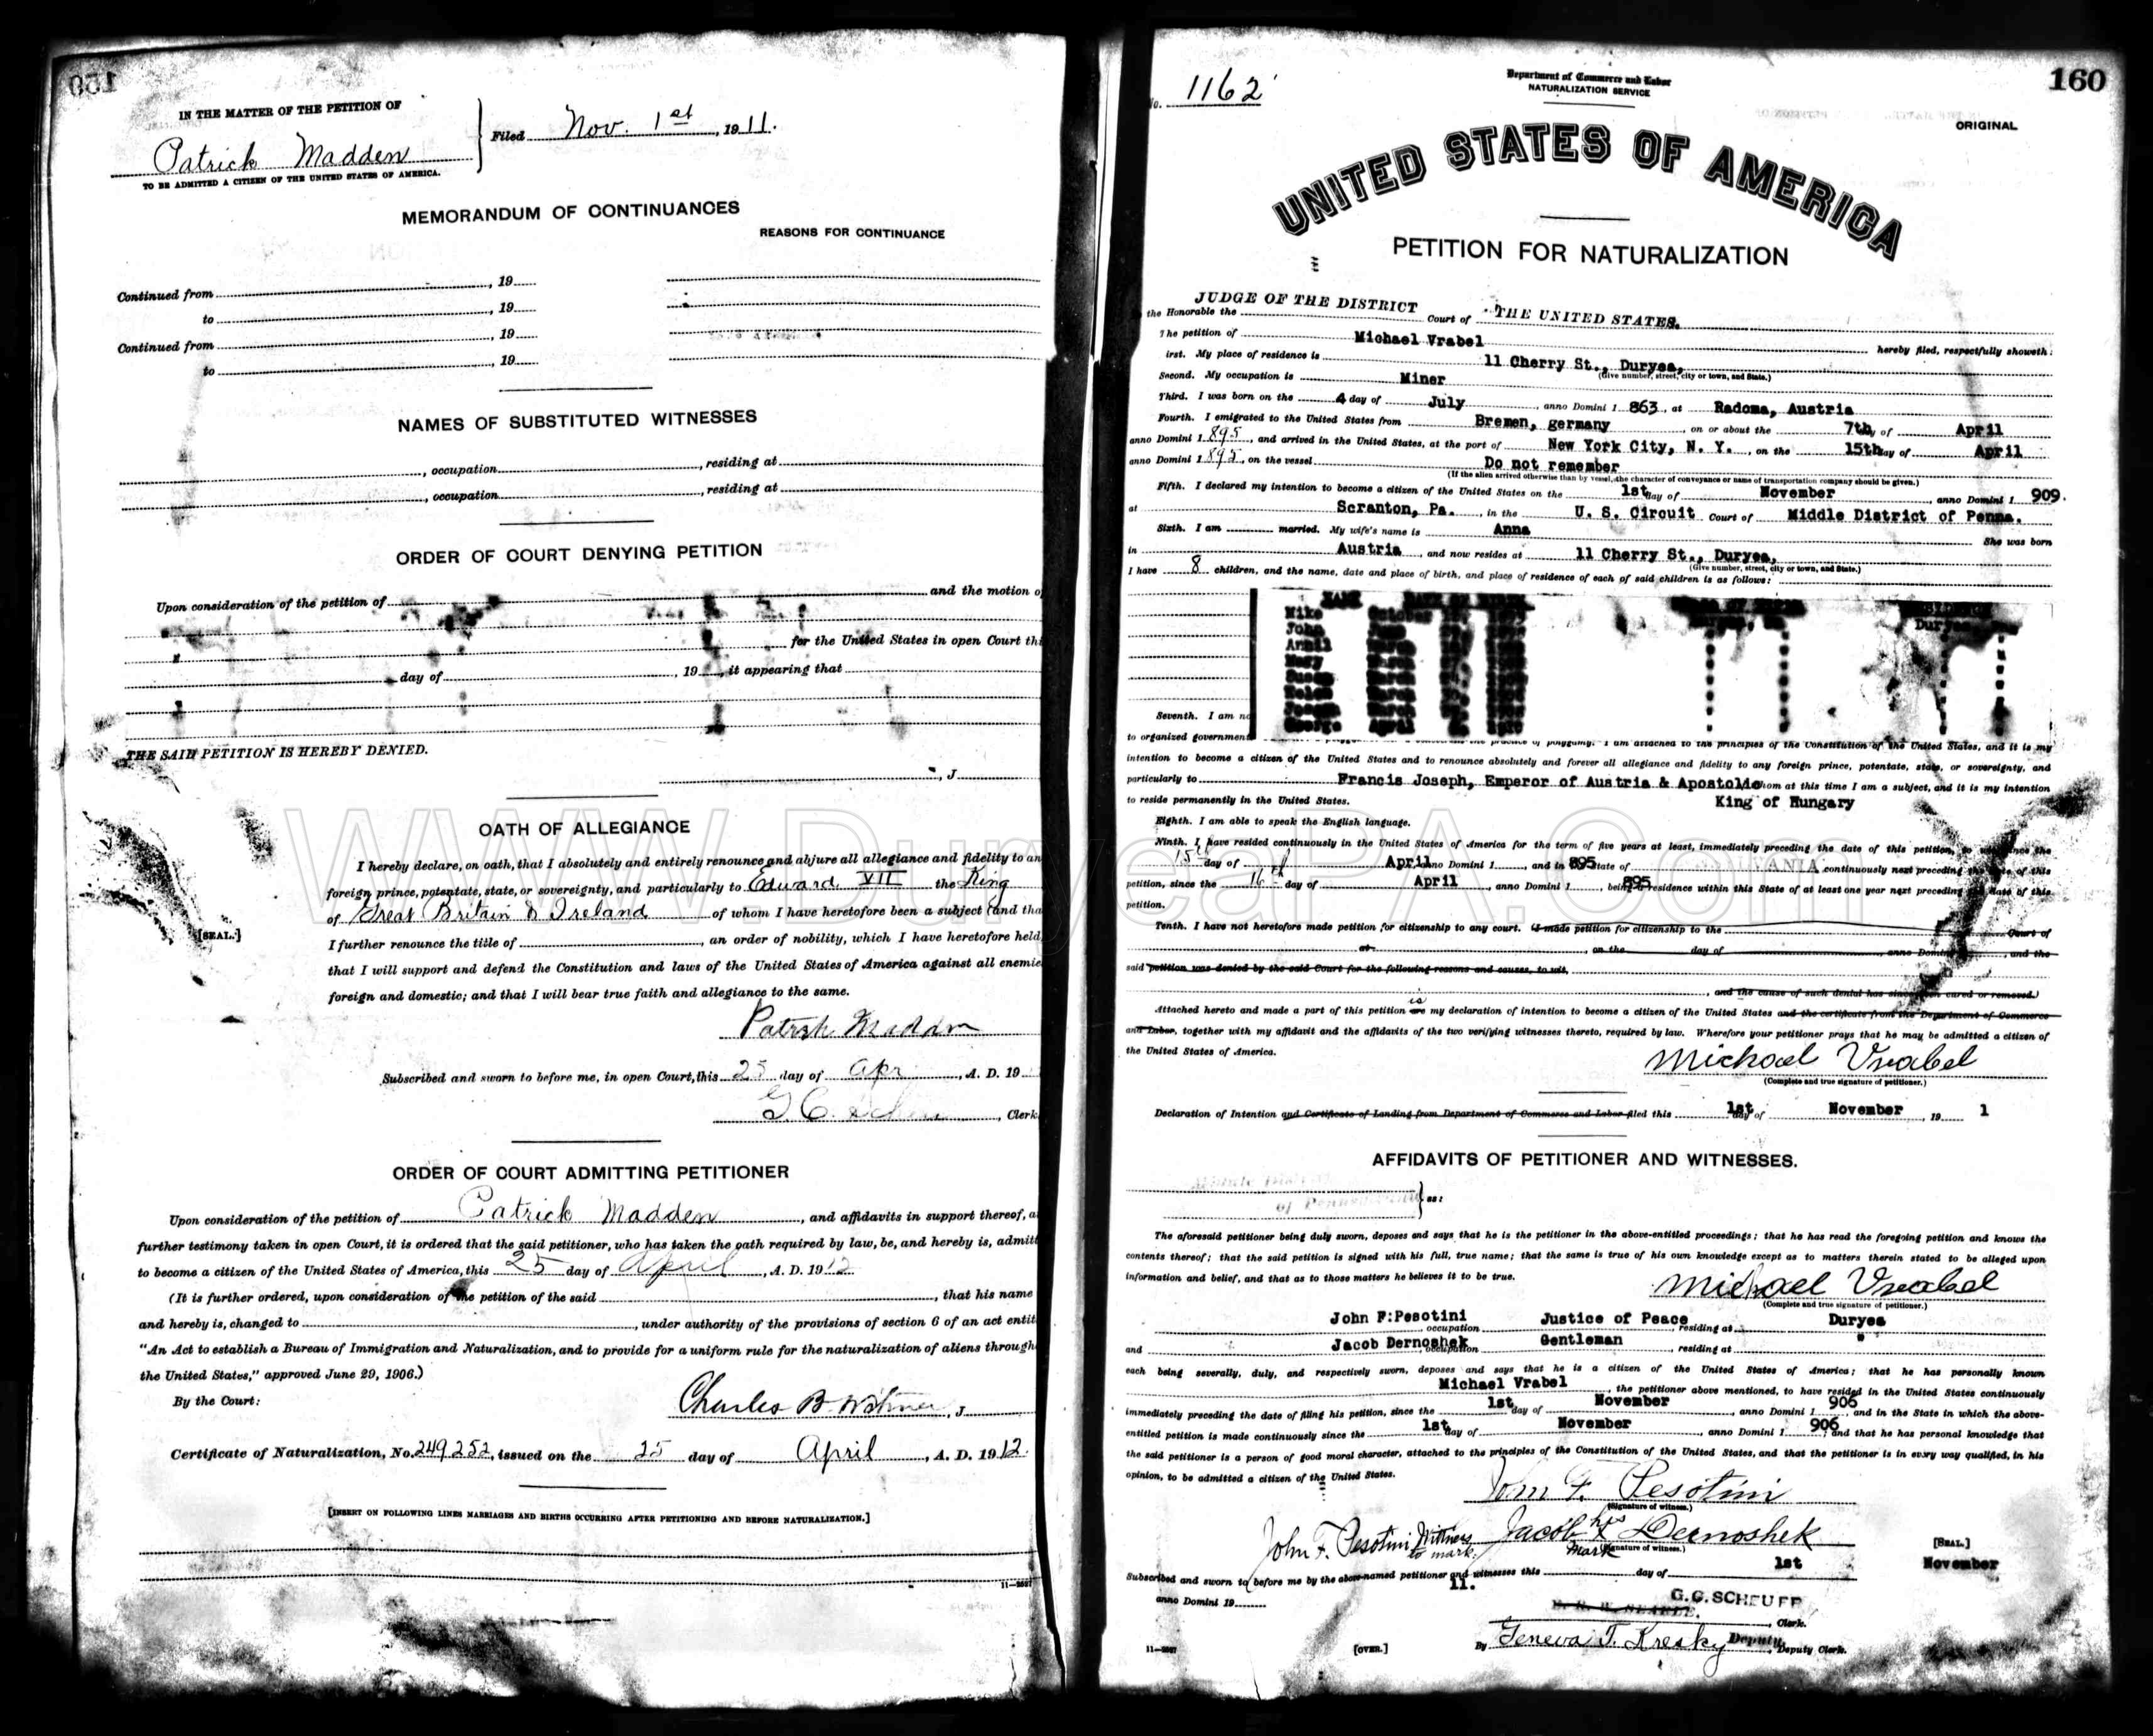 IN THE MATTER OF THE PETITION OF
Patrick Madden
TO BE ADMITTED A CITIZEN OF THE UNITED STATES OF AMERICA.
Filed Nov. 1st, 1911.
MEMORANDUM OF CONTINUANCES
REASONS FOR CONTINUANCE
Continued from , 19
to , 19
Continued from , 19
to , 19
NAMES OF SUBSTITUTED WITNESSES
, occupation , residing at
, occupation , residing at
ORDER OF COURT DENYING PETITION
Upon consideration of the petition of and the motion o
for the United States in open Court thi
day of , 19 , it appearing that
THE SAID PETITION IS HEREBY DENIED.
, J
OATH OF ALLEGIANCE
I hereby declare, on oath, that I absolutely and entirely renounce and abjure all allegiance and fidelity to an
foreign prince, potentate, state, or sovereignty, and particularly to Edward VII the King
of Great Britain & Ireland of whom I have heretofore been a subject (and tha
[SEAL.]
I further renounce the title of , an order of nobility, which I have heretofore held
that I will support and defend the Constitution and laws of the United States of America against all enemie
foreign and domestic; and that I will bear true faith and allegiance to the same.
Patrick Madden
Subscribed and sworn to before me, in open Court, this 25 day of Apr , A. D. 19
G. C. , Clerk
ORDER OF COURT ADMITTING PETITIONER
Upon consideration of the petition of Patrick Madden , and affidavits in support thereof, a
further testimony taken in open Court, it is ordered that the said petitioner, who has taken the oath required by law, be, and hereby is, admitt
to become a citizen of the United States of America, this 25 day of April , A. D. 1912
(It is further ordered, upon consideration of the petition of the said , that his name
and hereby is, changed to , under authority of the provisions of section 6 of an act entit
"An Act to establish a Bureau of Immigration and Naturalization, and to provide for a uniform rule for the naturalization of aliens through
the United States," approved June 29, 1906.)
By the Court:
Charles B. Witmer, J
Certificate of Naturalization, No. 249252, issued on the 25 day of April , A. D. 1912.
[INSERT ON FOLLOWING LINES MARRIAGES AND BIRTHS OCCURRING AFTER PETITIONING AND BEFORE NATURALIZATION.]
160
No. 1162
Department of Commerce and Labor
NATURALIZATION SERVICE
ORIGINAL
UNITED STATES OF AMERICA
PETITION FOR NATURALIZATION
JUDGE OF THE DISTRICT THE UNITED STATES.
the Honorable the Court of
The petition of Michael Vrabel hereby filed, respectfully showeth:
irst. My place of residence is 11 Cherry St., Duryea,
(Give number, street, city or town, and State.)
Second. My occupation is Miner
Third. I was born on the 4 day of July , anno Domini 1 863 , at Radoma, Austria
Fourth. I emigrated to the United States from Bremen, germany , on or about the 7th of April
anno Domini 1 895 , and arrived in the United States, at the port of New York City, N. Y. , on the 15th day of April
anno Domini 1 895 , on the vessel Do not remember
(If the alien arrived otherwise than by vessel, the character of conveyance or name of transportation company should be given.)
Fifth. I declared my intention to become a citizen of the United States on the 1st day of November , anno Domini 1 909.
at Scranton, Pa. , in the U. S. Circuit Court of Middle District of Penna.
Sixth. I am married. My wife's name is Anna She was born
in Austria , and now resides at 11 Cherry St., Duryea,
(Give number, street, city or town, and State.)
I have 8 children, and the name, date and place of birth, and place of residence of each of said children is as follows:
NAME
Mike October
John
March
Mary March
Susan March
Helen March
Joseph March
George April
Seventh. I am no
to organized government practice of polygamy. I am attached to the principles of the Constitution of the United States, and it is my
intention to become a citizen of the United States and to renounce absolutely and forever all allegiance and fidelity to any foreign prince, potentate, state, or sovereignty, and
particularly to Francis Joseph, Emperor of Austria & Apostolic whom at this time I am a subject, and it is my intention
to reside permanently in the United States. King of Hungary
Eighth. I am able to speak the English language.
Ninth. I have resided continuously in the United States of America for the term of five years at least, immediately preceding the date of this petition, to wit, since the
15th day of April anno Domini 1 895 , and in State of continuously next preceding the date of this
petition, since the 16th day of April , anno Domini 1 895 being a residence within this State of at least one year next preceding the date of this
petition.
Tenth. I have not heretofore made petition for citizenship to any court. (I made petition for citizenship to the Court of
at , on the day of , anno Domini , and the
said petition was denied by the said Court for the following reasons and causes, to wit,
, and the cause of such denial has since been cured or removed.)
is
Attached hereto and made a part of this petition are my declaration of intention to become a citizen of the United States and the certificate from the Department of Commerce
and Labor, together with my affidavit and the affidavits of the two verifying witnesses thereto, required by law. Wherefore your petitioner prays that he may be admitted a citizen of
the United States of America.
Michael Vrabel
(Complete and true signature of petitioner.)
Declaration of Intention and Certificate of Landing from Department of Commerce and Labor filed this 1st day of November , 19 1
AFFIDAVITS OF PETITIONER AND WITNESSES.
of Pennsylvania } ss:
The aforesaid petitioner being duly sworn, deposes and says that he is the petitioner in the above-entitled proceedings; that he has read the foregoing petition and knows the
contents thereof; that the said petition is signed with his full, true name; that the same is true of his own knowledge except as to matters therein stated to be alleged upon
information and belief, and that as to those matters he believes it to be true.
Michael Vrabel
(Complete and true signature of petitioner.)
John F.Pesotini , occupation Justice of Peace , residing at Duryea
and Jacob Dernoshek , occupation Gentleman , residing at "
each being severally, duly, and respectively sworn, deposes and says that he is a citizen of the United States of America; that he has personally known
Michael Vrabel , the petitioner above mentioned, to have resided in the United States continuously
immediately preceding the date of filing his petition, since the 1st day of November , anno Domini 1 906 , and in the State in which the above-
entitled petition is made continuously since the 1st day of November , anno Domini 1 906 and that he has personal knowledge that
the said petitioner is a person of good moral character, attached to the principles of the Constitution of the United States, and that the petitioner is in every way qualified, in his
opinion, to be admitted a citizen of the United States.
John F. Pesotini
(Signature of witness.)
John F. Pesotini Witness to mark. Jacob his X mark Dernoshek
(Signature of witness.)
[SEAL.]
Subscribed and sworn to before me by the above-named petitioner and witnesses this 1st day of November
anno Domini 19 11.
G.C. SCHEUER
, Clerk.
By Geneva T. Kresky Deputy, Deputy Clerk.
[OVER.]
WWW.DuryeaPA.Com